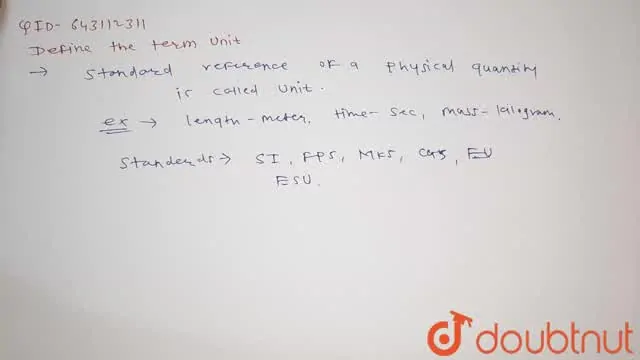 QID- 643112311
Define the term Unit
→ Standard reference of a physical quantity
is called Unit.
ex → length-meter, time-sec, mass-kilogram.
Standerds → SI, FPS, MKS, CGS, EU
ESU.
doubtnut